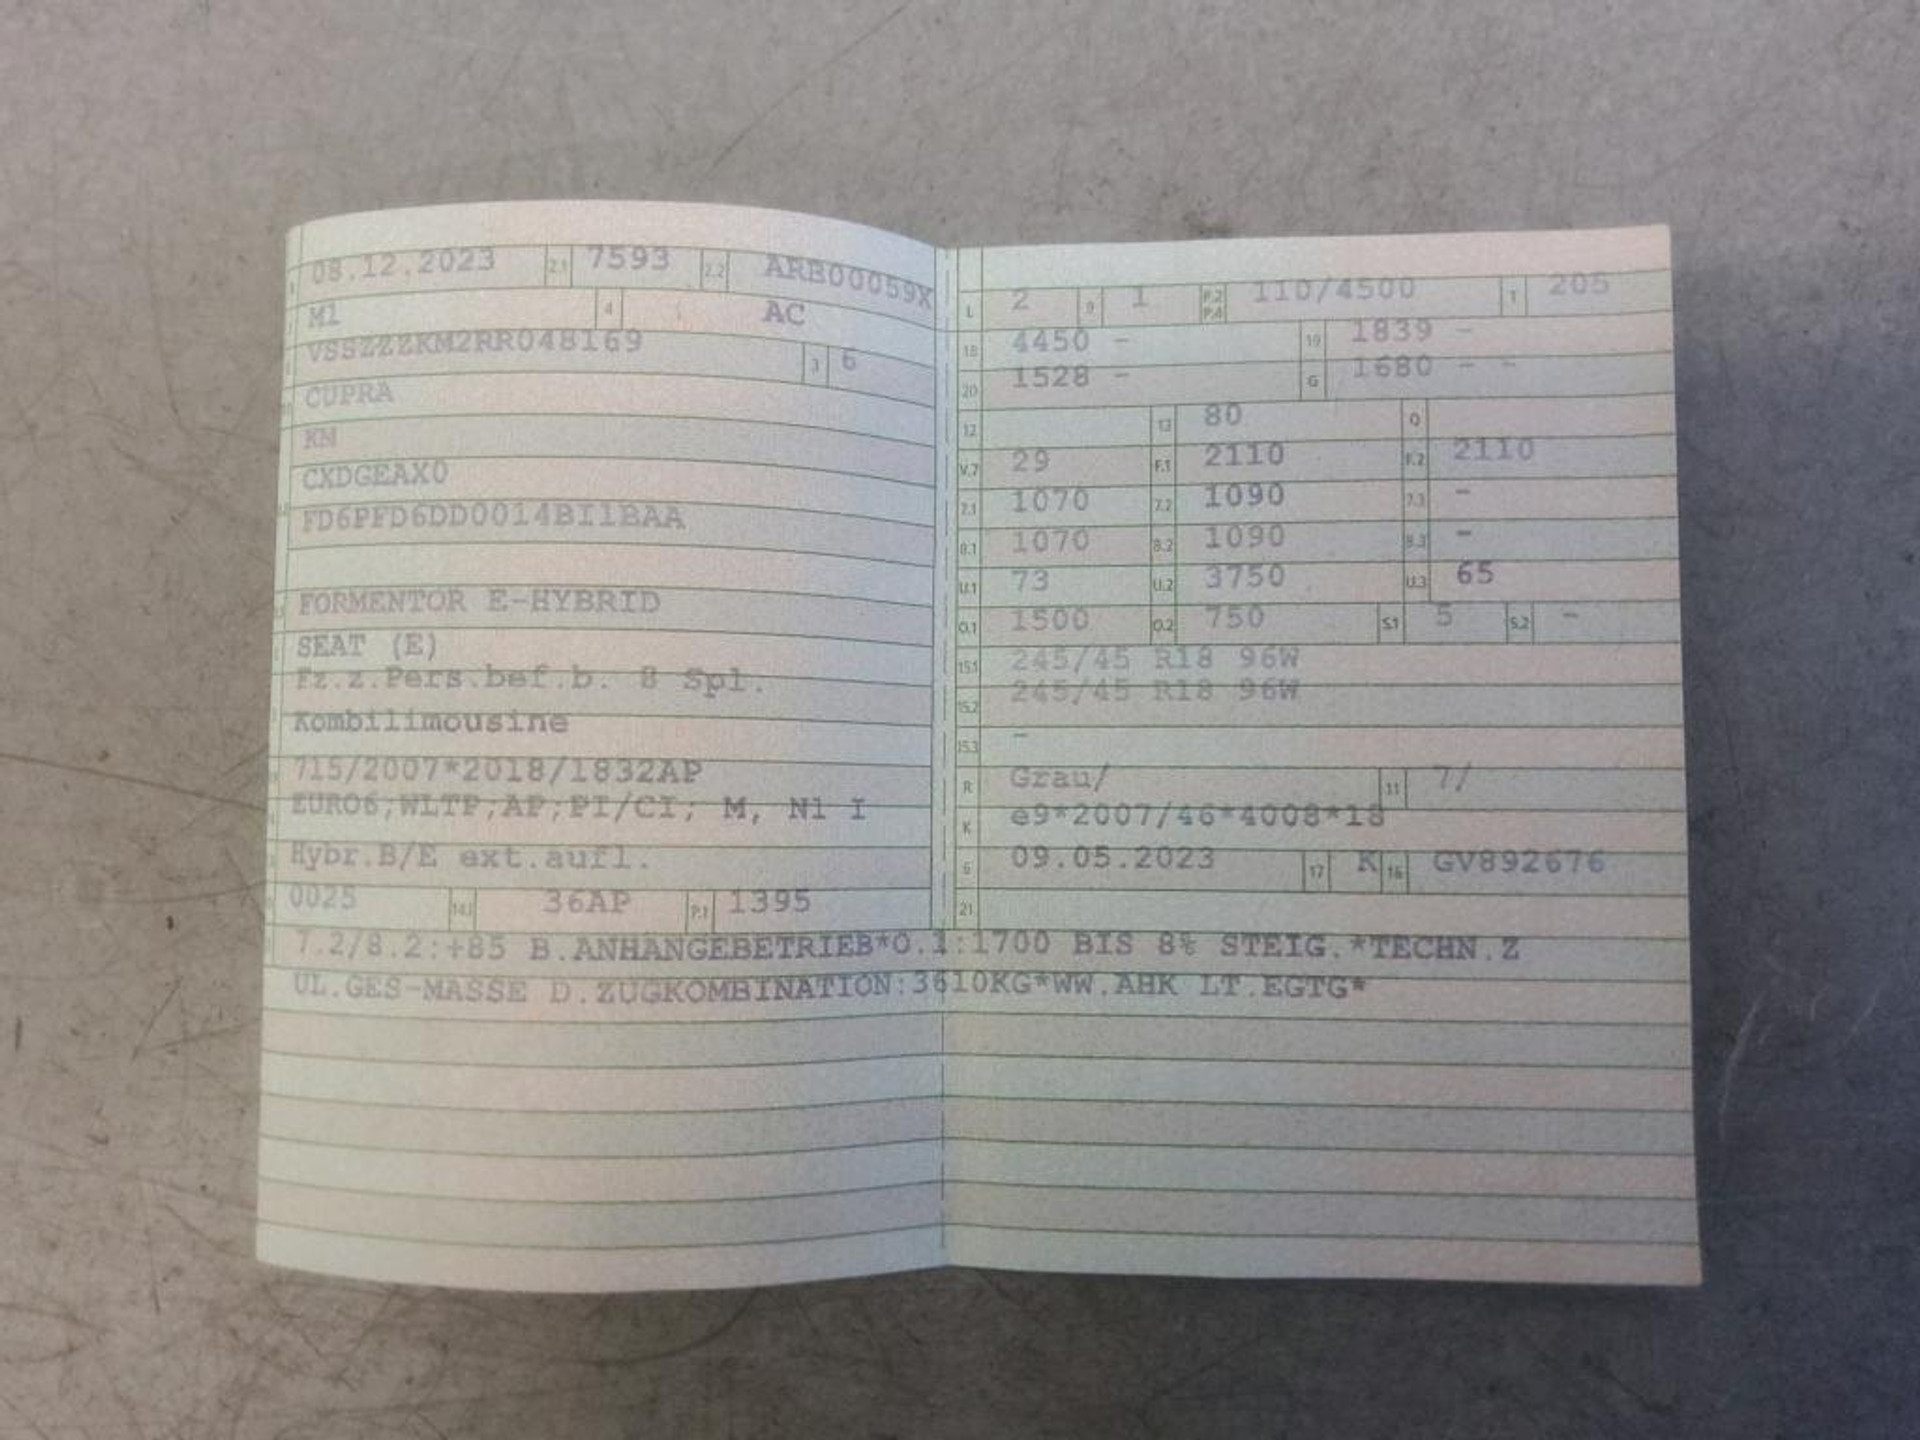 08.12.2023 2.1 7593 2.2 ARB00059X
M1 4 AC
VSSZZZKM2RR048169 3 6
CUPRA
KM
CXDGEAX0
FD6PFD6DD0014BI1BAA
FORMENTOR E-HYBRID
SEAT (E)
Fz.z.Pers.bef.b. 8 Spl.
Kombilimousine
715/2007*2018/1832AP
EURO6;WLTP;AP;PI/CI; M, N1 I
Hybr.B/E ext.aufl.
0025 14.1 36AP P.1 1395
L 2 9 1 P.2 P.4 110/4500 T 205
18 4450 - 19 1839 -
20 1528 - G 1680 - -
12 13 80 Q
V.7 29 F.1 2110 F.2 2110
7.1 1070 7.2 1090 7.3 -
8.1 1070 8.2 1090 8.3 -
U.1 73 U.2 3750 U.3 65
O.1 1500 O.2 750 S.1 5 S.2 -
15.1 245/45 R18 96W
15.2 245/45 R18 96W
15.3 -
R Grau/ 11 7/
K e9*2007/46*4008*18
6 09.05.2023 17 K 16 GV892676
21
7.2/8.2:+85 B.ANHANGEBETRIEB*O.1:1700 BIS 8% STEIG.*TECHN.Z
UL.GES-MASSE D.ZUGKOMBINATION:3610KG*WW.AHK LT.EGTG*